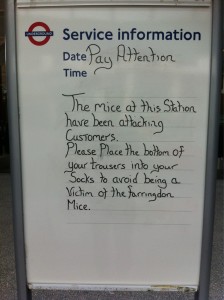 UNDERGROUND
Service information
Date Pay Attention
Time
The mice at this Station
have been attacking
Customer's.
Please Place the bottom of
your trousers into your
Socks to avoid being a
Victim of the Farringdon
Mice.